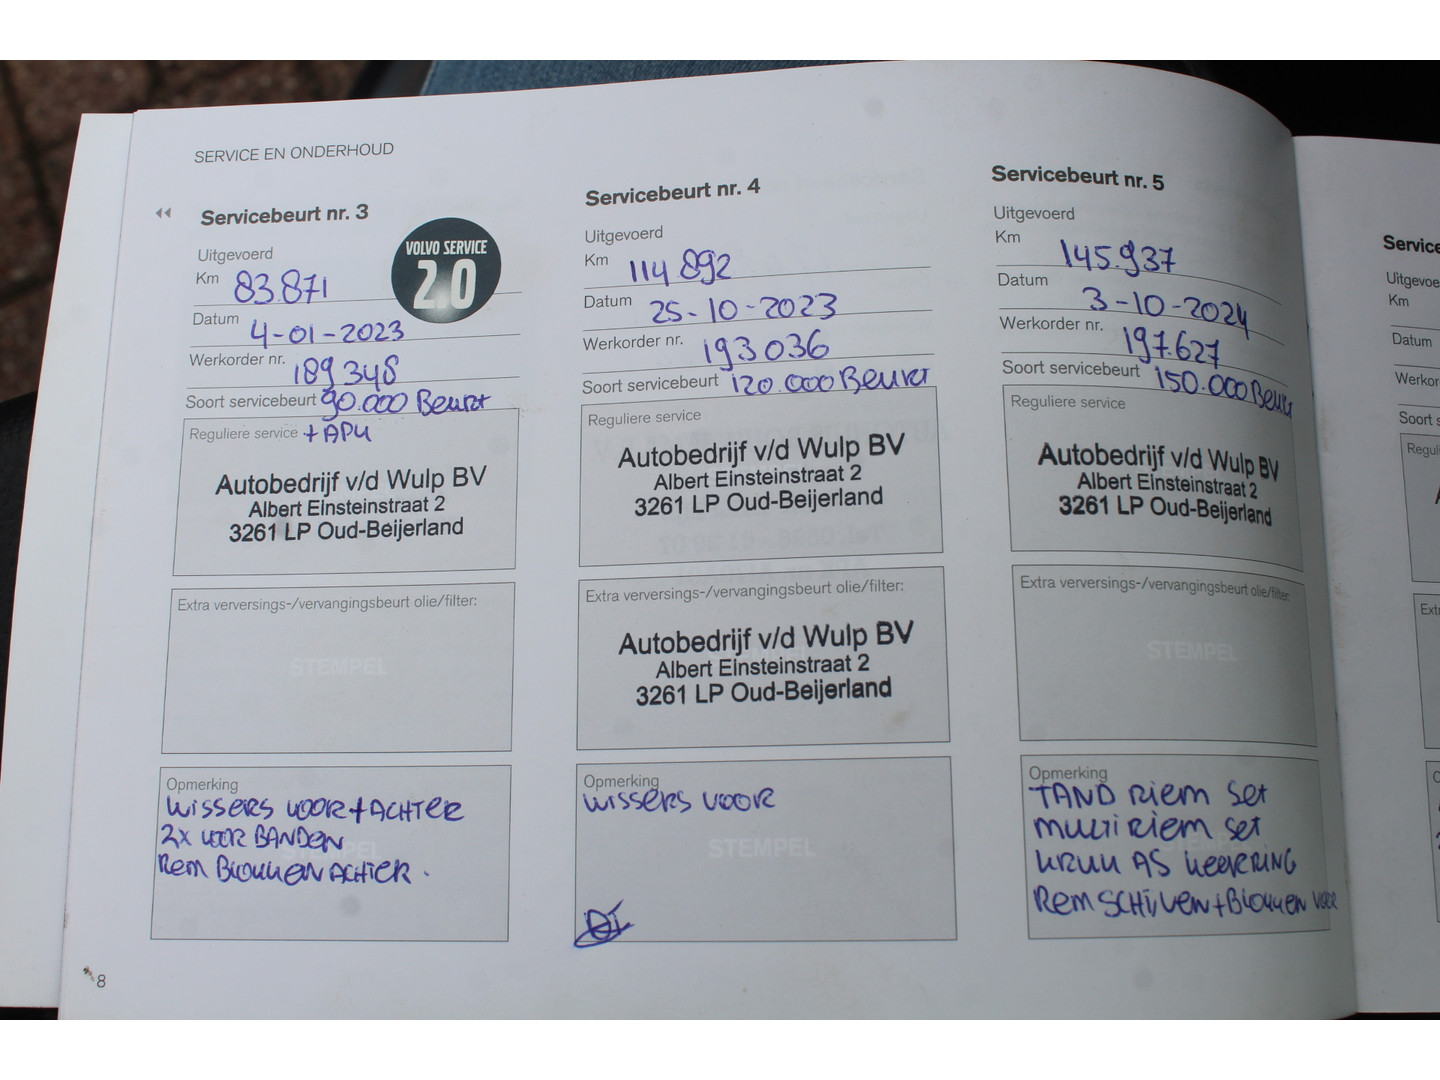 SERVICE EN ONDERHOUD
Servicebeurt nr. 3
VOLVO SERVICE
2.0
Uitgevoerd
Km 83.871
Datum 4-01-2023
Werkorder nr. 189348
Soort servicebeurt 90.000 Beurt
Reguliere service + APK
Autobedrijf v/d Wulp BV
Albert Einsteinstraat 2
3261 LP Oud-Beijerland
Extra verversings-/vervangingsbeurt olie/filter:
STEMPEL
Opmerking
WISSERS VOOR + ACHTER
2X VOOR BANDEN
Rem BLOKKEN ACHTER.
STEMPEL
8
Servicebeurt nr. 4
Uitgevoerd
Km 114.892
Datum 25-10-2023
Werkorder nr. 193036
Soort servicebeurt 120.000 Beurt
Reguliere service
Autobedrijf v/d Wulp BV
Albert Einsteinstraat 2
3261 LP Oud-Beijerland
Extra verversings-/vervangingsbeurt olie/filter:
Autobedrijf v/d Wulp BV
Albert Einsteinstraat 2
3261 LP Oud-Beijerland
Opmerking
WISSERS VOOR
STEMPEL
Servicebeurt nr. 5
Uitgevoerd
Km 145.937
Datum 3-10-2024
Werkorder nr. 197.627
Soort servicebeurt 150.000 Beurt
Reguliere service
Autobedrijf v/d Wulp BV
Albert Einsteinstraat 2
3261 LP Oud-Beijerland
Extra verversings-/vervangingsbeurt olie/filter:
STEMPEL
Opmerking
TAND Riem Set
MULTI Riem Set
KRUK AS KEERRING
Rem SCHIJVEN + BLOKKEN VOOR
STEMPEL
Service
Uitgevoe
Km
Datum
Werkor
Soort s
Regul
Extr